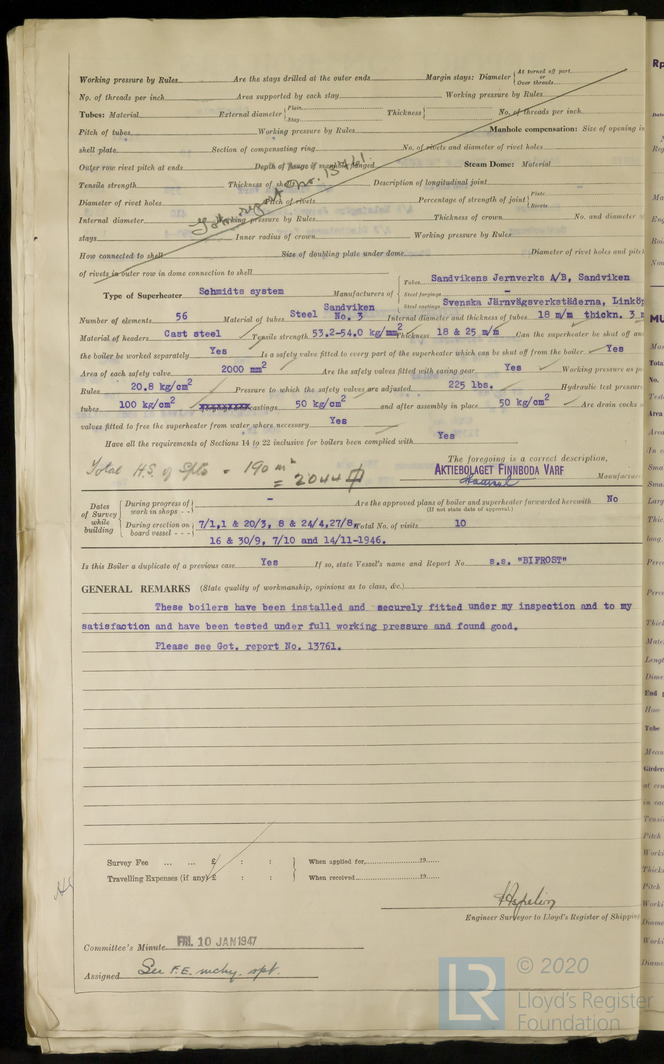 Working pressure by Rules Are the stays drilled at the outer ends Margin stays: Diameter { At turned off part or Over threads
No. of threads per inch Area supported by each stay Working pressure by Rules
Tubes: Material External diameter { Plain Stay Thickness { No. of threads per inch
Pitch of tubes Working pressure by Rules Manhole compensation: Size of opening in
shell plate Section of compensating ring No. of rivets and diameter of rivet holes
Outer row rivet pitch at ends Depth of flange if manhole flanged Steam Dome: Material
Tensile strength Thickness of shell Description of longitudinal joint
Got. report no. 13761.
Diameter of rivet holes Pitch of rivets Percentage of strength of joint { Plate Rivets
Internal diameter Working pressure by Rules Thickness of crown No. and diameter of
stays Inner radius of crown Working pressure by Rules
How connected to shell Size of doubling plate under dome Diameter of rivet holes and pitch
of rivets in outer row in dome connection to shell
Type of Superheater Schmidts system Manufacturers of { Tubes Sandvikens Jernverks A/B, Sandviken
Steel forgings -
Steel castings Svenska Järnvägsverkstäderna, Linköp
Number of elements 56 Material of tubes Steel Sandviken No. 3 Internal diameter and thickness of tubes 18 m/m thickn. 3 m
Material of headers Cast steel Tensile strength 53.2-54.0 kg/mm2 Thickness 18 & 25 m/m Can the superheater be shut off and
the boiler be worked separately Yes Is a safety valve fitted to every part of the superheater which can be shut off from the boiler Yes
Area of each safety valve 2000 mm2 Are the safety valves fitted with easing gear Yes Working pressure as p
Rules 20.8 kg/cm2 Pressure to which the safety valves are adjusted 225 lbs. Hydraulic test pressure
tubes 100 kg/cm2 castings 50 kg/cm2 and after assembly in place 50 kg/cm2 Are drain cocks o
valves fitted to free the superheater from water where necessary Yes
Have all the requirements of Sections 14 to 22 inclusive for boilers been complied with Yes
Total H.S. of Spts = 190 m2
= 2044
The foregoing is a correct description,
AKTIEBOLAGET FINNBODA VARF
Manufacturer
Dates of Survey while building { During progress of work in shops - - - Are the approved plans of boiler and superheater forwarded herewith No
(If not state date of approval.)
During erection on board vessel - - - 7/1,1 & 20/3, 8 & 24/4,27/8, Total No. of visits 10
16 & 30/9, 7/10 and 14/11-1946.
Is this Boiler a duplicate of a previous case Yes If so, state Vessel's name and Report No. s.s. "BIFROST"
GENERAL REMARKS (State quality of workmanship, opinions as to class, &c.)
These boilers have been installed and securely fitted under my inspection and to my
satisfaction and have been tested under full working pressure and found good.
Please see Got. report No. 13761.
Survey Fee ... ... £ : : } When applied for, 19
Travelling Expenses (if any) £ : : } When received 19
Engineer Surveyor to Lloyd's Register of Shipping
Committee's Minute FRI. 10 JAN 1947
Assigned See F.E. mchy. rpt.
LR © 2020
Lloyd's Register
Foundation